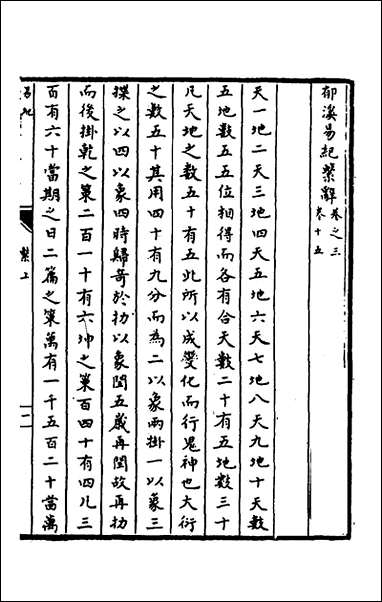 郁溪易紀繫辭卷之三
卷十五
天一地二天三地四天五地六天七地八天九地十天數
五地數五五位相得而各有合天數二十有五地數三十
凡天地之數五十有五此所以成變化而行鬼神也大衍
之數五十其用四十有九分而為二以象兩掛一以象三
揲之以四以象四時歸奇於扐以象閏五歲再閏故再扐
而後掛乾之策二百一十有六坤之策百四十有四凡三
百有六十當期之日二篇之策萬有一千五百二十當萬
易紀
繫上
一